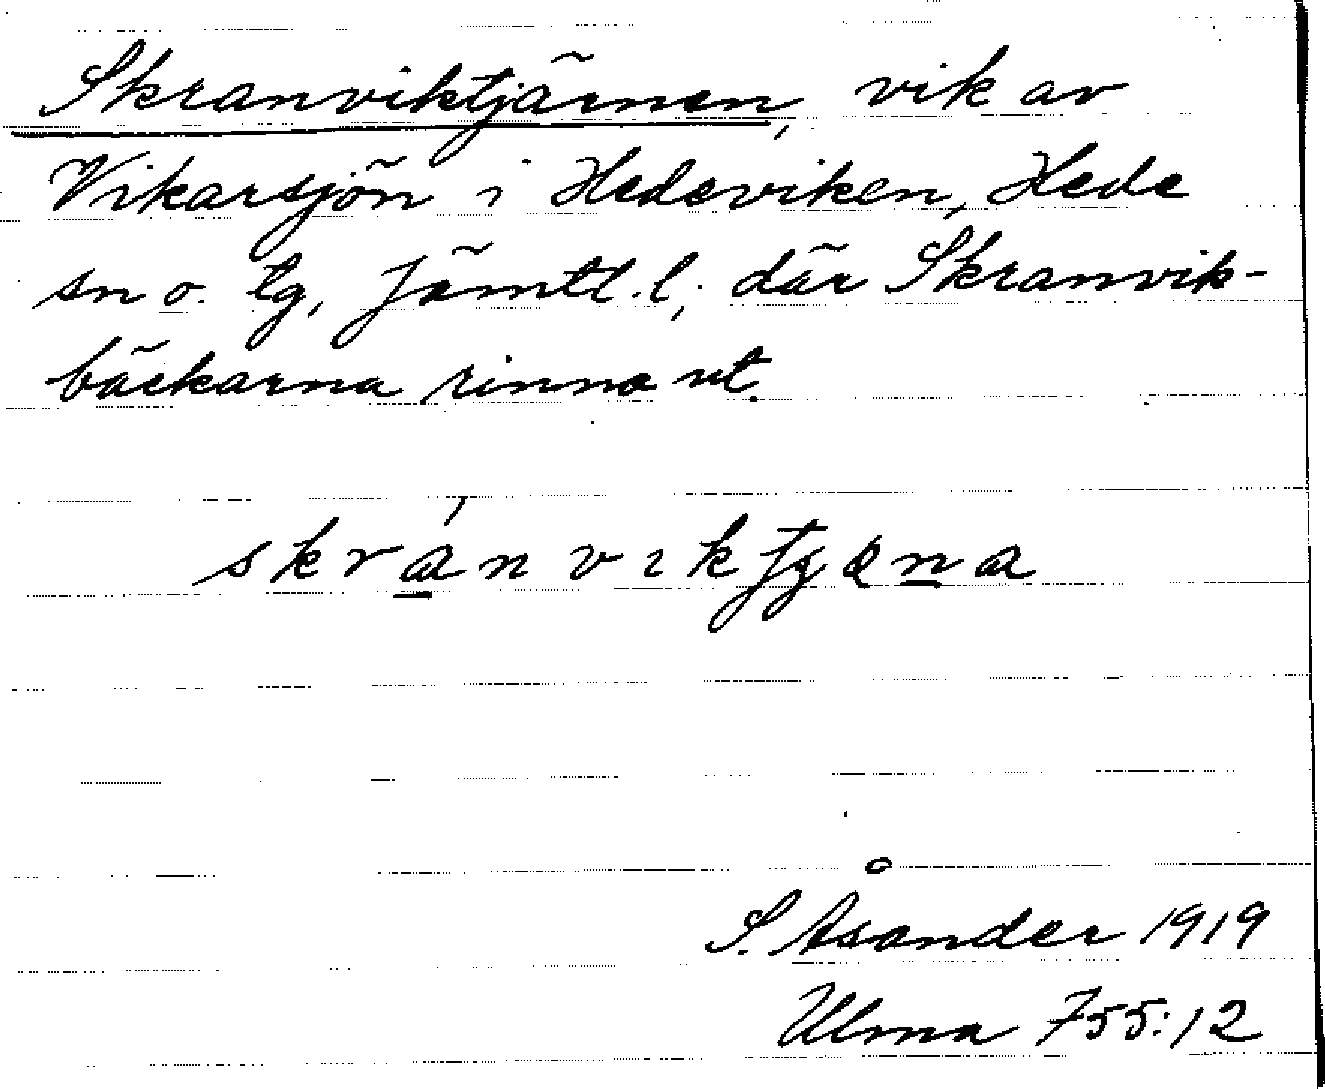 Skranviktjärnen, vik av
Vikarsjön i Hedeviken, Hede
sn o. tg, Jämtl. l; där Skranvik-
bäckarna rinna ut.
S. Åsander 1919
Ulma 755:12